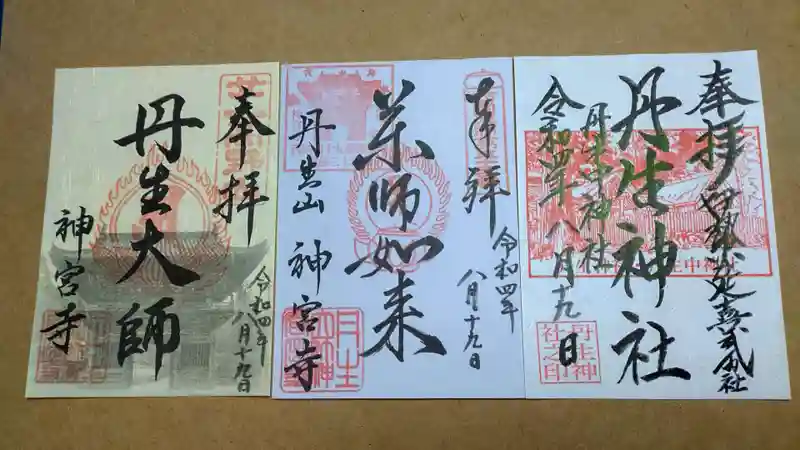 奉拝
丹生大師
神宮寺
令和四年
八月十九日
奉拝
薬師如来
丹生山
神宮寺
令和四年
八月十九日
奉拝
丹生神社
丹生中神社
令和四年八月十九日
丹生神
社之印